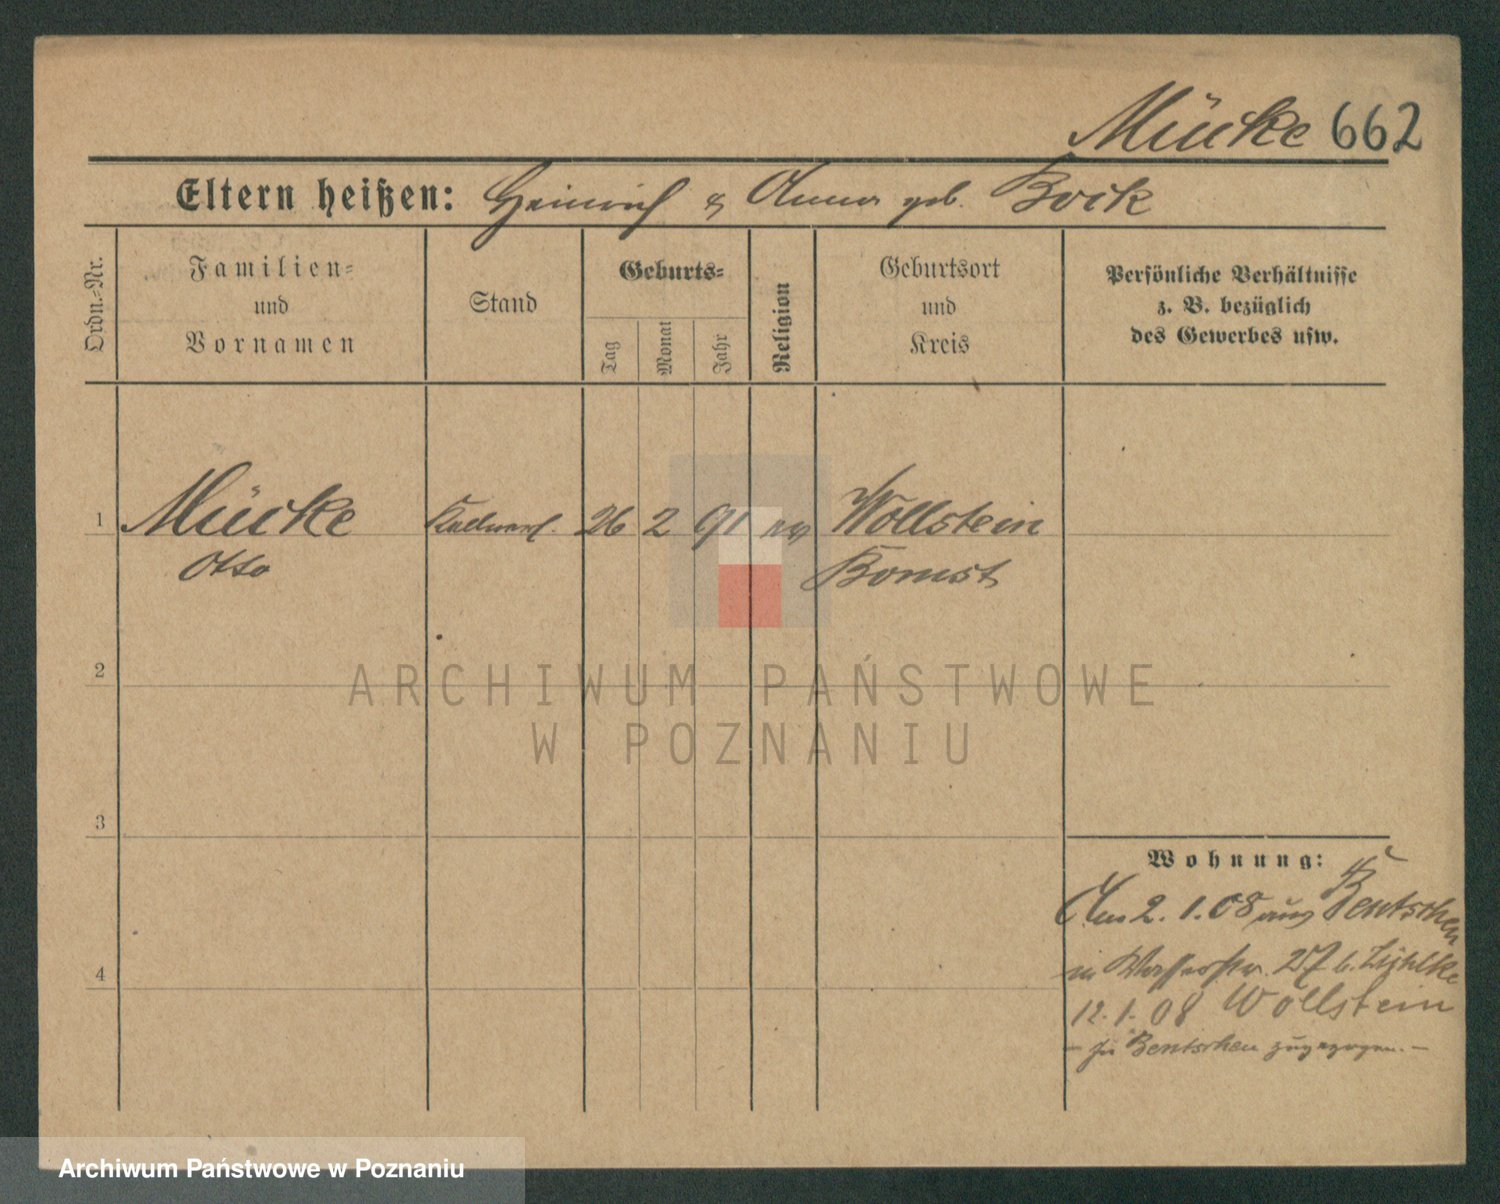 Mücke 662
Eltern heißen: Heinrich & Anna geb. Bock
Ordn.-Nr.
Familien-
und
Vornamen
Stand
Geburts-
Tag
Monat
Jahr
Religion
Geburtsort
und
Kreis
Persönliche Verhältnisse
z. B. bezüglich
des Gewerbes usw.
1 Mücke 26 2 91 ev Wollstein
Otto Bomst
2
3
4
Wohnung:
Am 2.1.08 aus Bentschen
in Wasserstr. 27 b.
12.1.08 Wollstein
- zu Bentschen zugezogen. -
ARCHIWUM PAŃSTWOWE
W POZNANIU
Archiwum Państwowe w Poznaniu